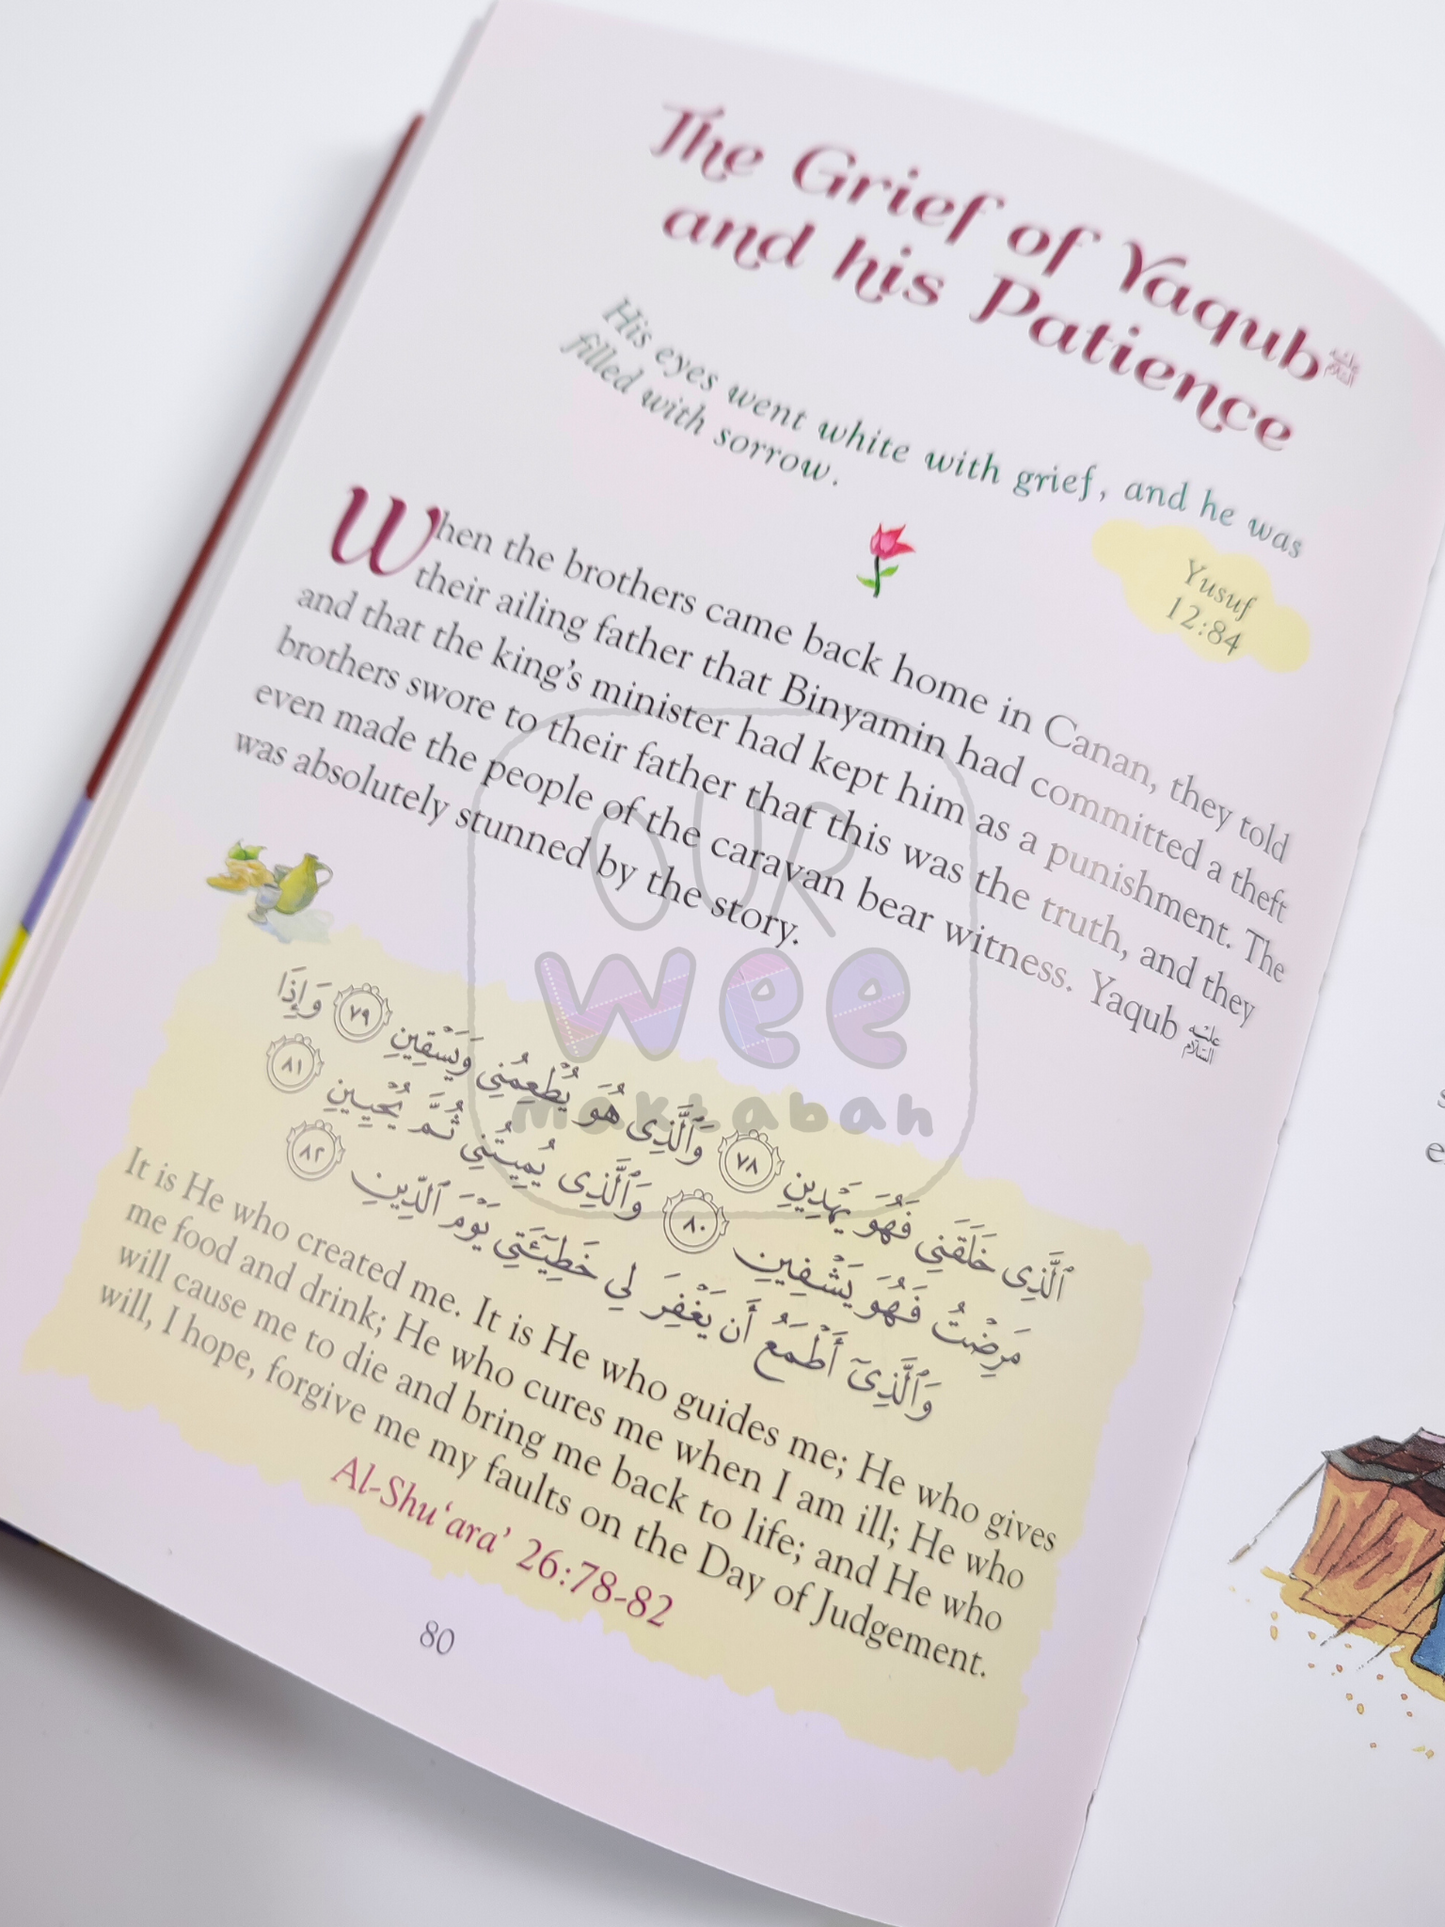 The Grief of Yaqub عليه السلام
and his Patience
His eyes went white with grief, and he was
filled with sorrow.
Yusuf
12:84
When the brothers came back home in Canan, they told
their ailing father that Binyamin had committed a theft
and that the king's minister had kept him as a punishment. The
brothers swore to their father that this was the truth, and they
even made the people of the caravan bear witness. Yaqub عليه السلام
was absolutely stunned by the story.
ٱلَّذِى خَلَقَنِى فَهُوَ يَهْدِينِ ٧٨ وَٱلَّذِى هُوَ يُطْعِمُنِى وَيَسْقِينِ ٧٩ وَإِذَا
مَرِضْتُ فَهُوَ يَشْفِينِ ٨٠ وَٱلَّذِى يُمِيتُنِى ثُمَّ يُحْيِينِ ٨١
وَٱلَّذِىٓ أَطْمَعُ أَن يَغْفِرَ لِى خَطِيٓـَٔتِى يَوْمَ ٱلدِّينِ ٨٢
It is He who created me. It is He who guides me; He who gives
me food and drink; He who cures me when I am ill; He who
will cause me to die and bring me back to life; and He who
will, I hope, forgive me my faults on the Day of Judgement.
Al-Shu‘ara’ 26:78-82
80
OUR
wee
maktabah